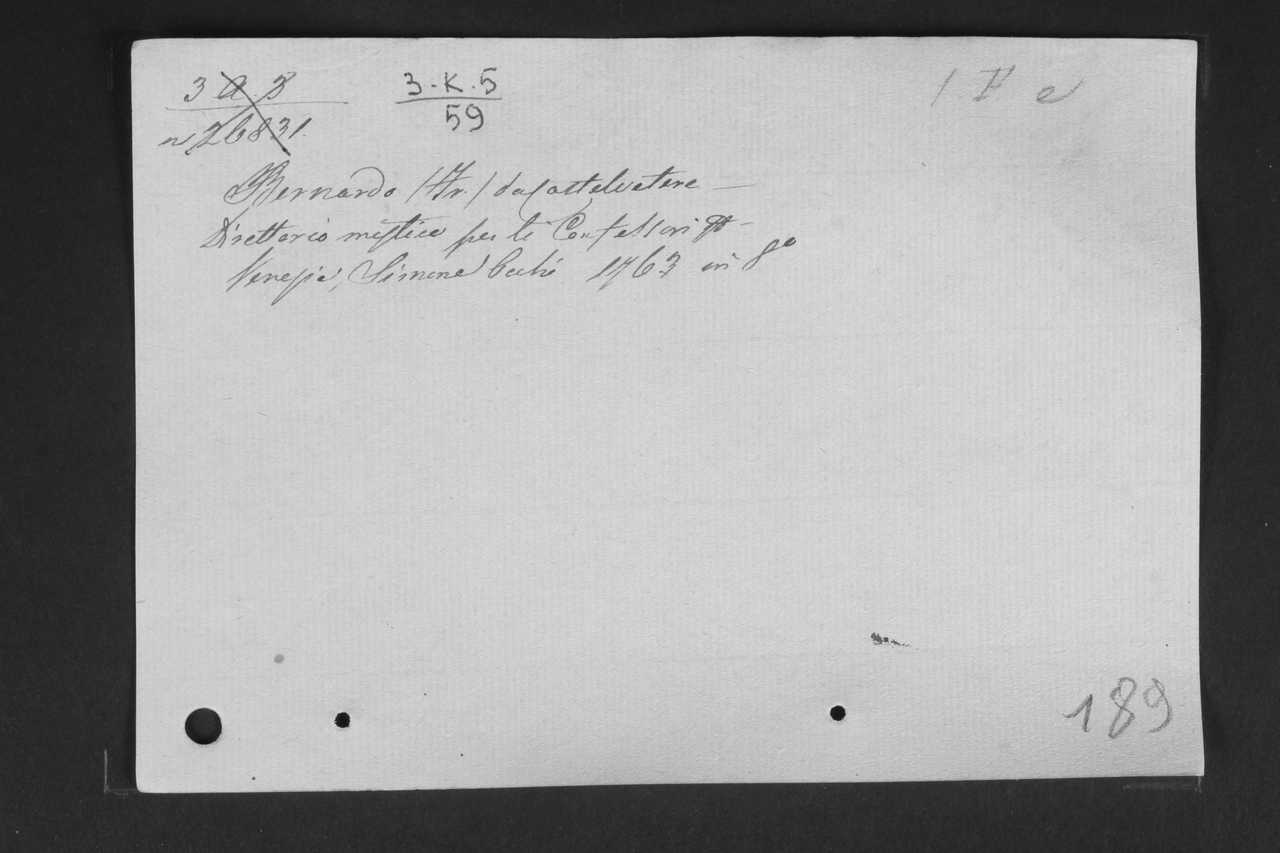 3 a B 3-K.5 1 F e
n 26831. 59
Bernardo (Fr.) da Castelvetere —
Direttorio mistico per li Confessori &c -
Venezia, Simone Occhi 1763 in 8o
189